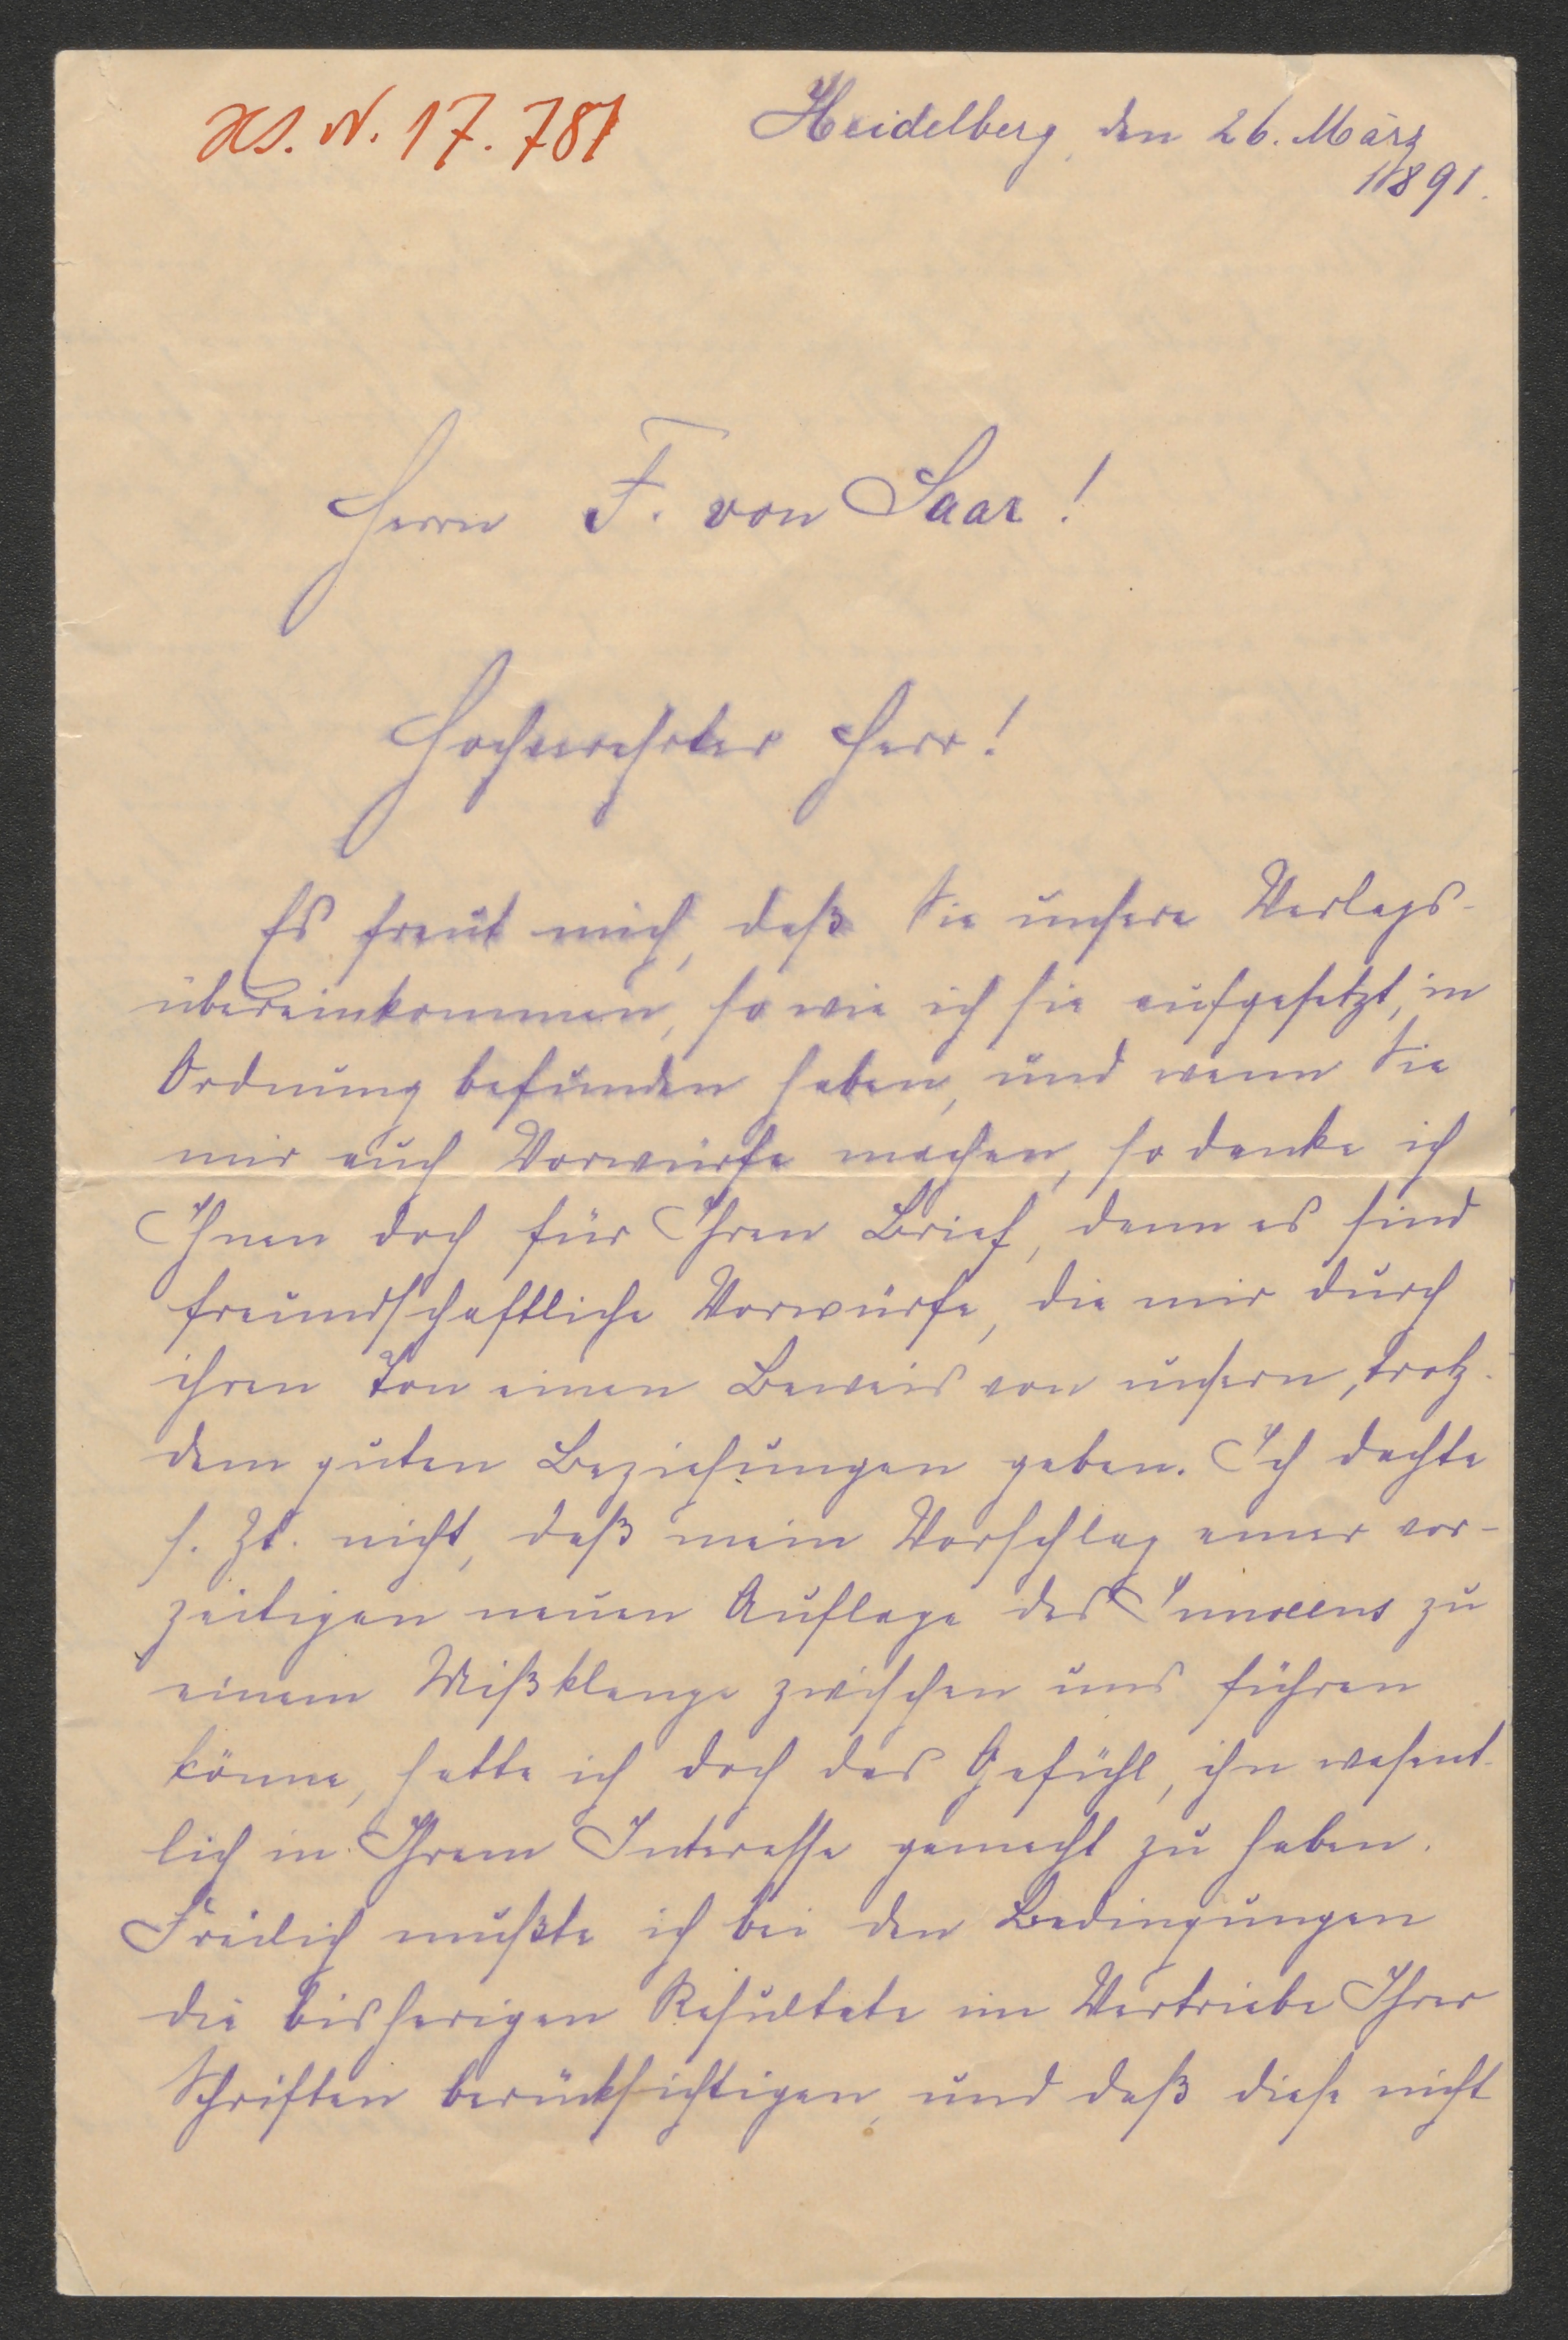 HS. N. 17.781
Heidelberg, den 26. März
1891.
Herrn F. von Saar!
Hochverehrter Herr!
Es freut mich, daß Sie unsere Verlags-
übereinkommen, so wie ich sie aufgesetzt, in
Ordnung befunden haben, und wenn Sie
mir auch Vorwürfe machen, so danke ich
Ihnen doch für Ihren Brief, denn es sind
freundschaftliche Vorwürfe, die mir durch
ihren Ton einen Beweis von unsern, trotz-
dem guten Beziehungen geben. Ich dachte
s. Zt. nicht, daß mein Vorschlag einer vor-
zeitigen neuen Auflage des Innocens zu
einem Mißklange zwischen uns führen
könne, hatte ich doch das Gefühl, ihn wesent-
lich in Ihrem Interesse gemacht zu haben.
Freilich mußte ich bei den Bedingungen
die bisherigen Resultate im Vertriebe Ihrer
Schriften berücksichtigen, und daß diese nicht